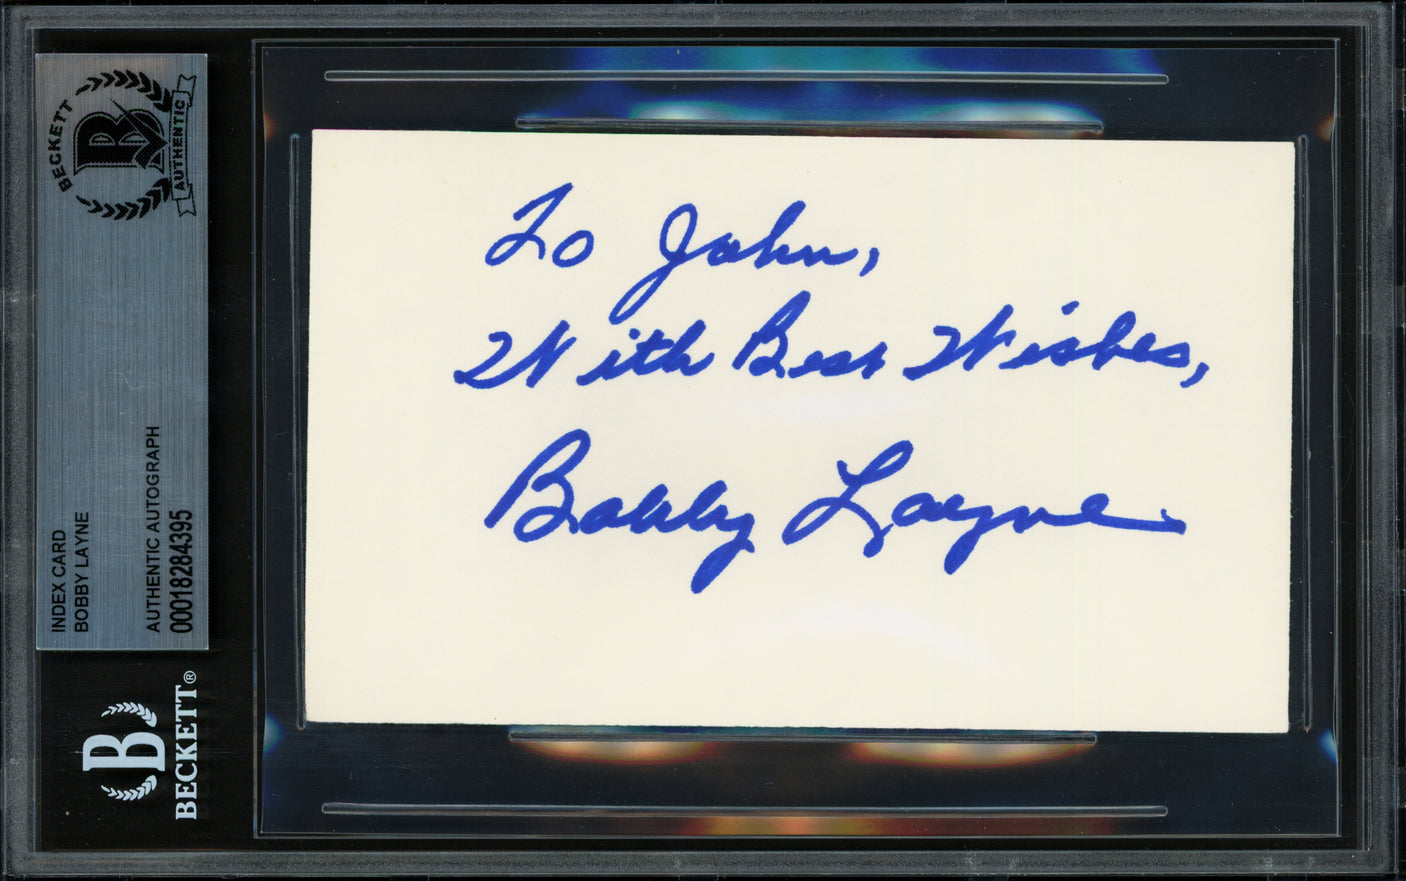 BECKETT
B
AUTHENTIC
INDEX CARD
BOBBY LAYNE
AUTHENTIC AUTOGRAPH
00018284395
B
BECKETT®
To John,
With Best Wishes,
Bobby Layne